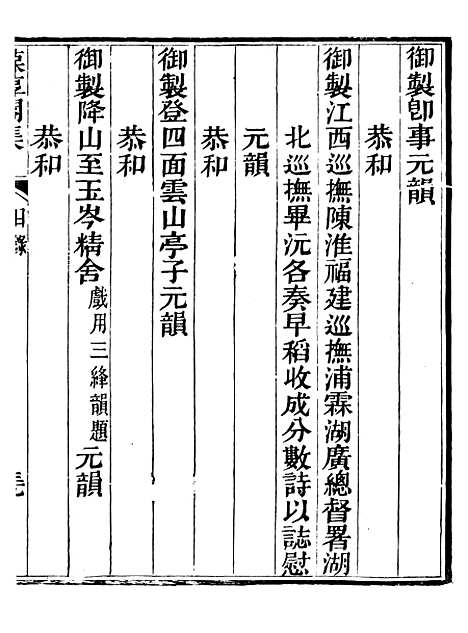 御製卽事元韻
恭和
御製江西巡撫陳淮福建巡撫浦霖湖廣總督署湖
北巡撫畢沅各奏早稻收成分數詩以誌慰
元韻
恭和
御製登四面雲山亭子元韻
恭和
御製降山至玉岑精舍戲用三絳韻題元韻
恭和
集
目錄